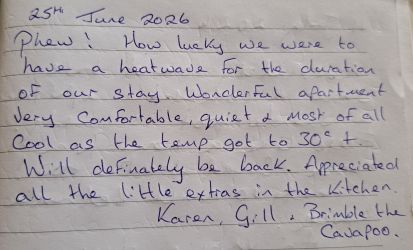 25th June 2026
Phew! How lucky we were to
have a heatwave for the duration
of our stay. Wonderful apartment
very comfortable, quiet & most of all
cool as the temp got to 30° +.
Will definately be back. Appreciated
all the little extras in the kitchen.
Karen, Gill & Brimble the
Cavapoo.